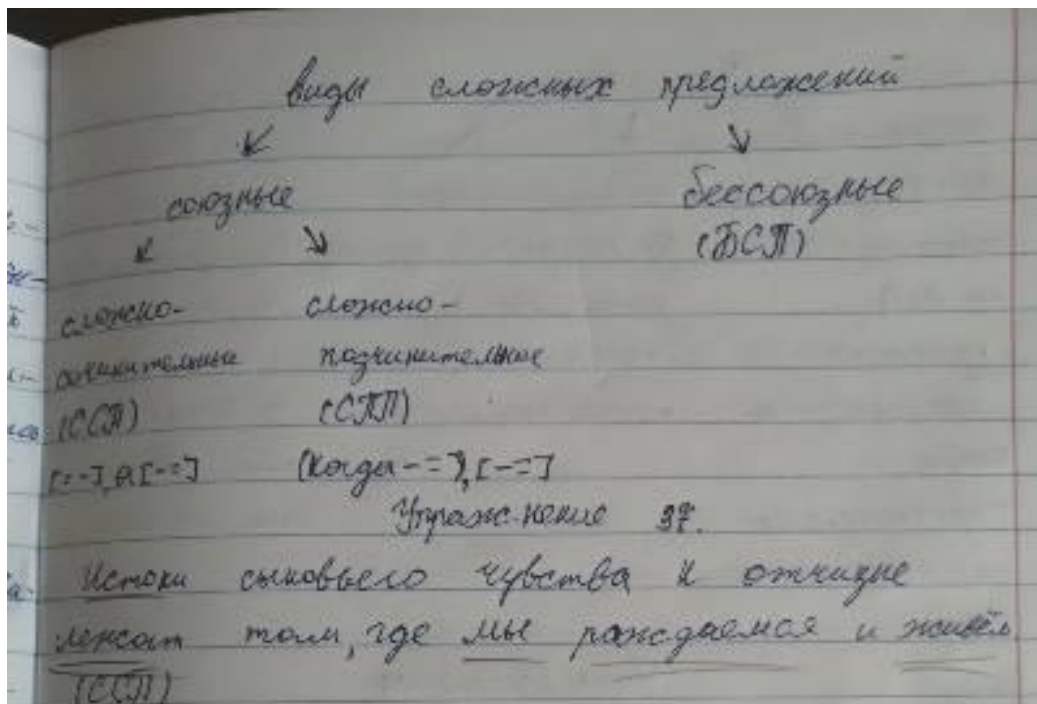 виды сложных предложений
союзные бессоюзные
(БСП)
сложно- сложно-
сочинительные подчинительные
(ССП) (СПП)
[=-], а [-=] (Когда -=), [-=]
Упражнение 37.
Истоки сыновьего чувства к отчизне
лежат там, где мы раждаемся и живём
(ССП)